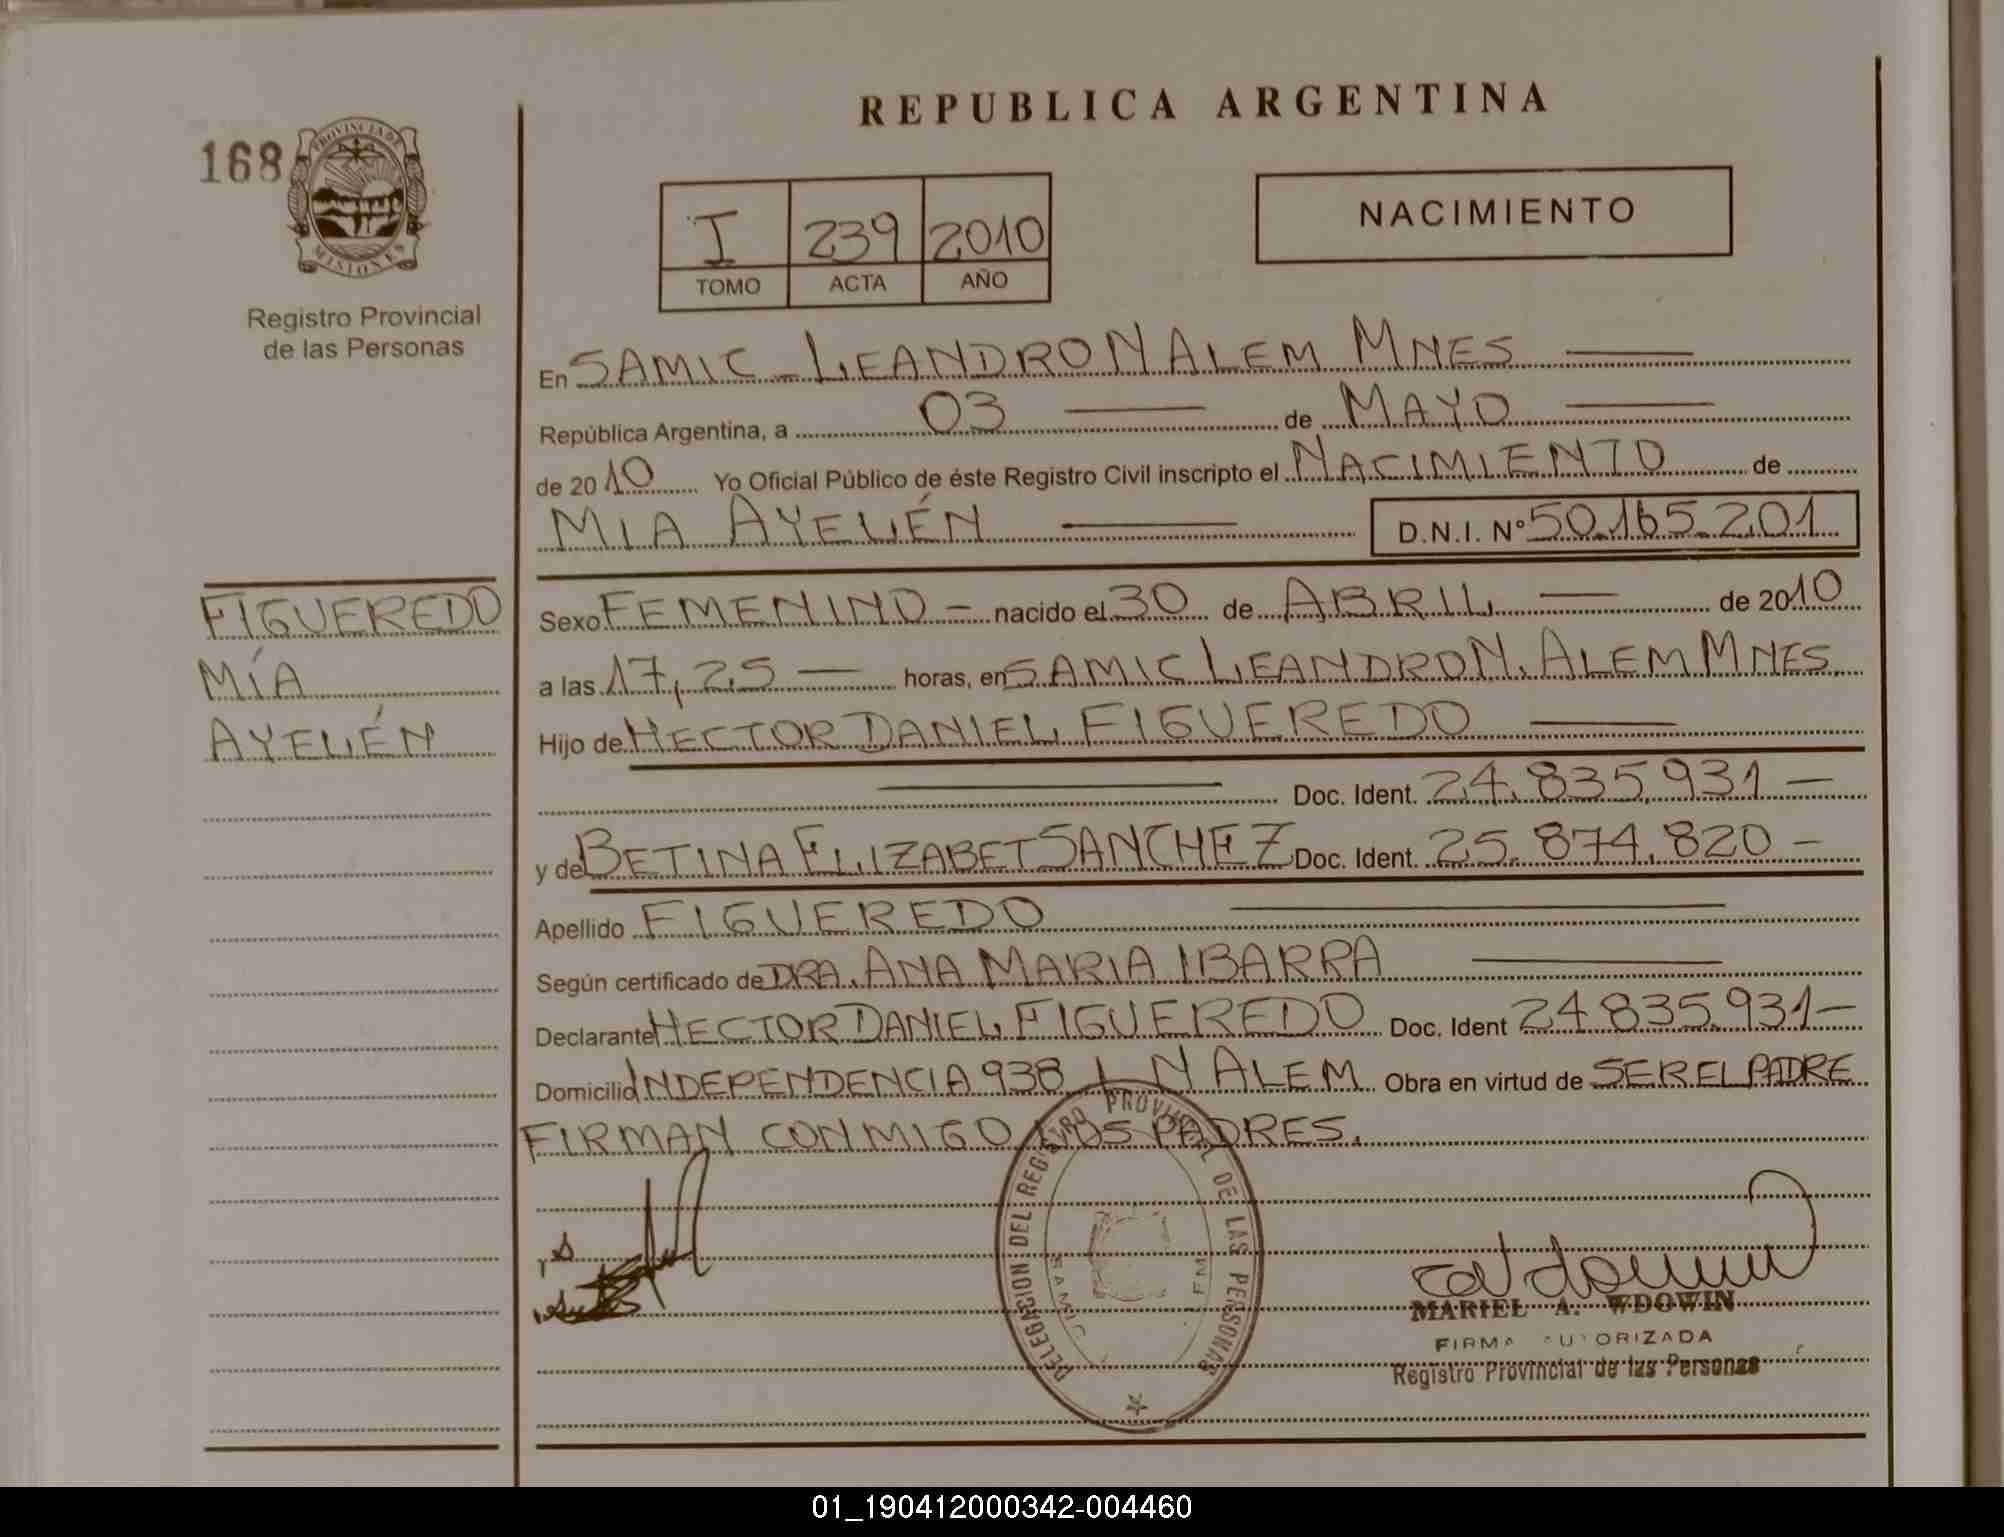 REPUBLICA ARGENTINA
168
PROVINCIA DE
MISIONES
Registro Provincial
de las Personas
I 239 2010
TOMO ACTA AÑO
NACIMIENTO
En SAMIC - LEANDRO N ALEM MNES
República Argentina, a 03 de MAYO
de 2010 Yo Oficial Público de éste Registro Civil inscripto el NACIMIENTO de
MIA AYELÉN D.N.I. Nº 50.165.201
FIGUEREDO
MÍA
AYELÉN
Sexo FEMENINO - nacido el 30 de ABRIL de 2010
a las 17,25 horas, en SAMIC LEANDRO N. ALEM MNES
Hijo de HECTOR DANIEL FIGUEREDO
Doc. Ident. 24.835.931 -
y de BETINA ELIZABET SANCHEZ Doc. Ident. 25.874.820 -
Apellido FIGUEREDO
Según certificado de DRA. ANA MARIA IBARRA
Declarante HECTOR DANIEL FIGUEREDO Doc. Ident 24.835.931 -
Domicilio INDEPENDENCIA 938 L N ALEM Obra en virtud de SER EL PADRE
FIRMAN CONMIGO LOS PADRES.
DELEGACION DEL REGISTRO PROVINCIAL DE LAS PERSONAS
SAMIC
MARIEL A. WDOWIN
FIRMA AUTORIZADA
Registro Provincial de las Personas
01_190412000342-004460